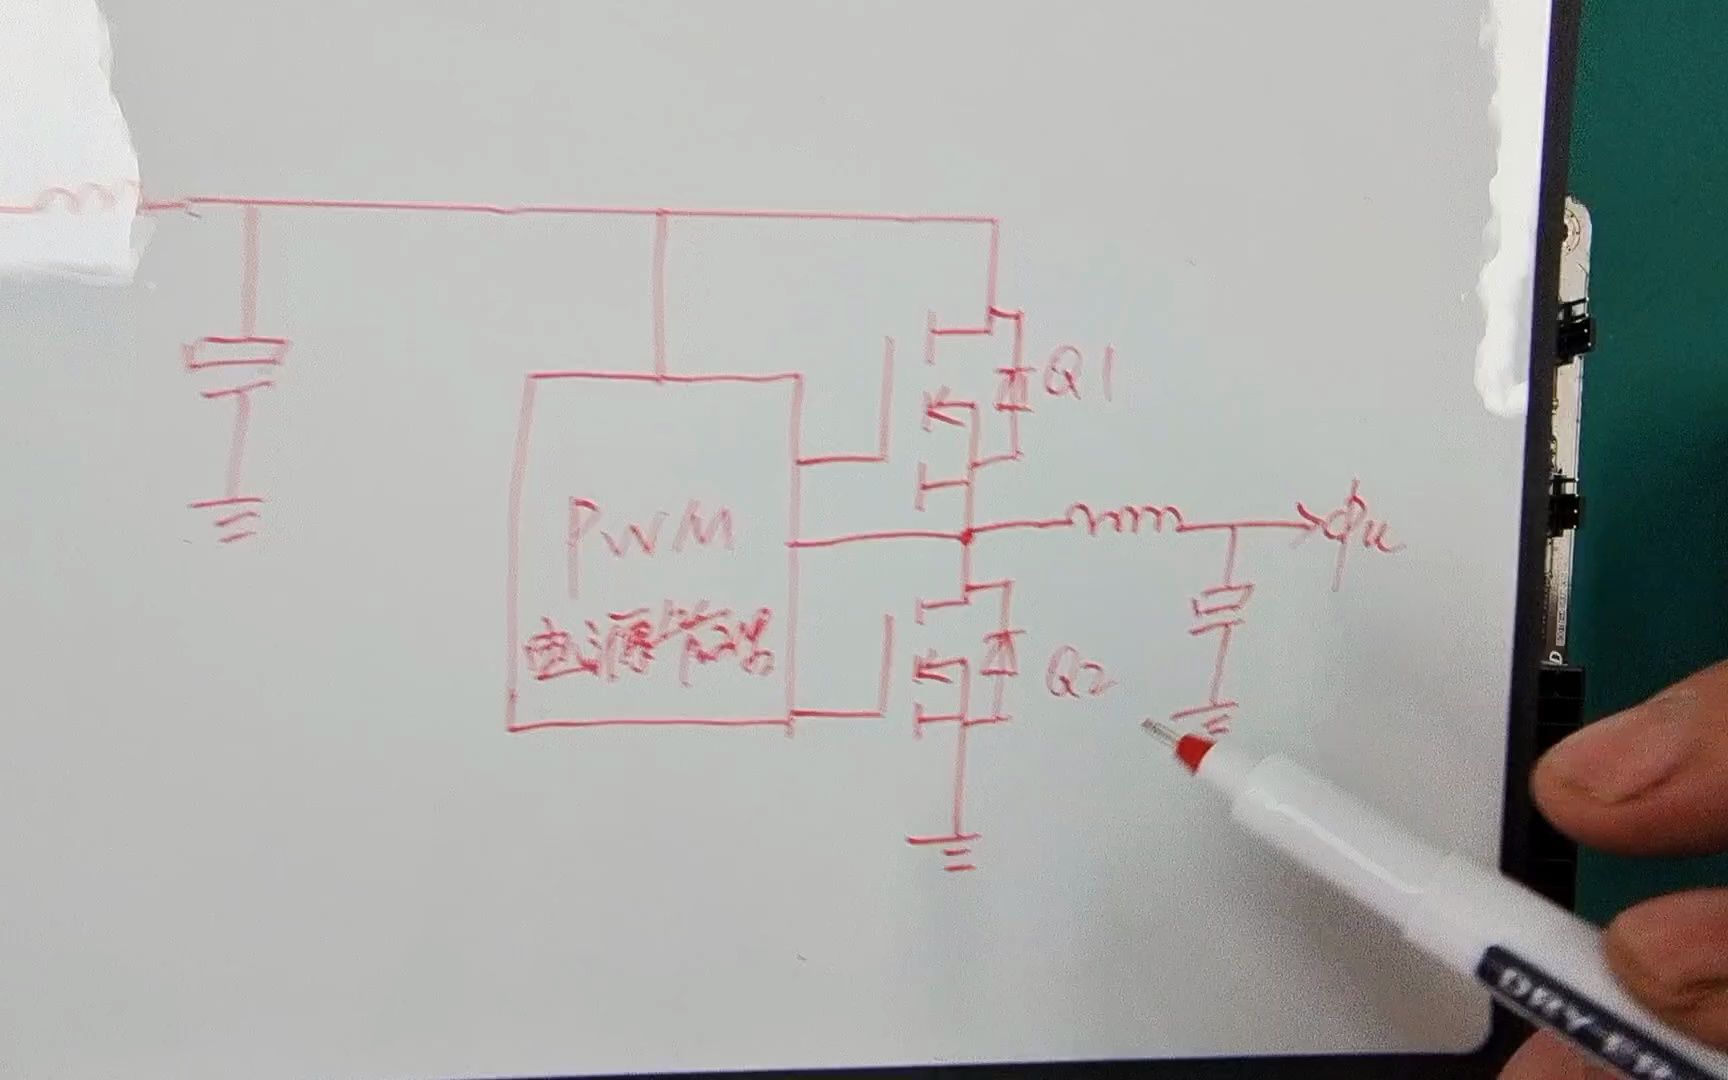 Q1
PWM
电源管理器
Q2
DRY-ER
D